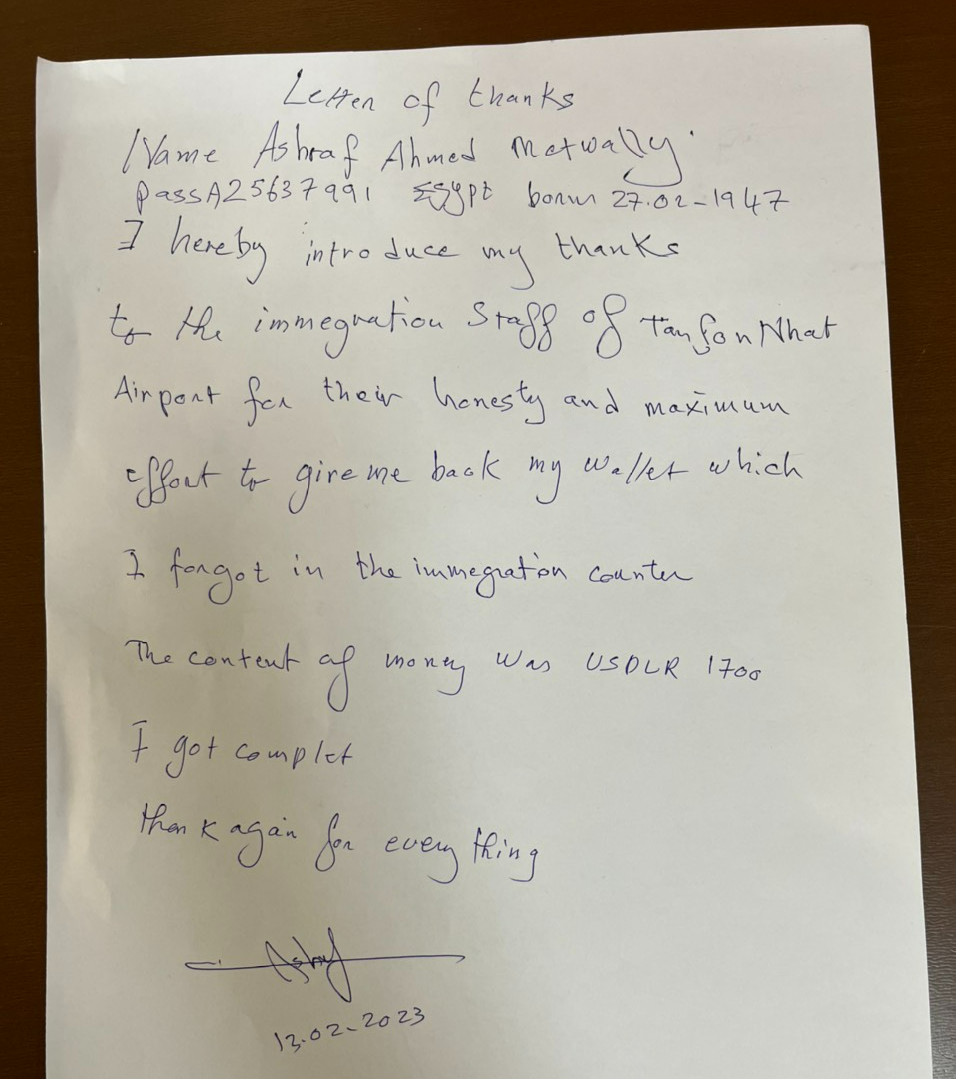 Letter of thanks
Name Ashraf Ahmed Metwally
pass A25637991 Egypt born 27.02-1947
I hereby introduce my thanks
to the immegration Staff of Tan Son Nhat
Airport for their honesty and maximum
effort to give me back my wallet which
I forgot in the immegration counter
The content of money was USDLR 1700
I got complet
thank again for every thing
Ashraf
13.02-2023